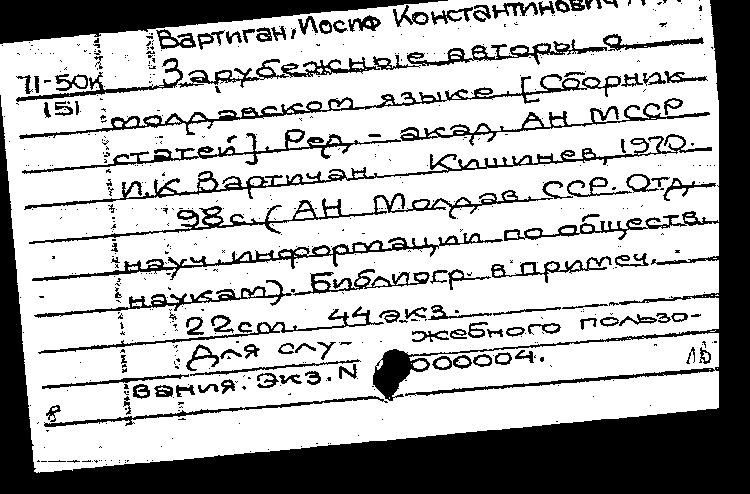 Вартиган, Иосиф Константинович,
71-50к Зарубежные авторы о
151 молдавском языке. [Сборник
статей]. Ред. - акад. АН МССР
И.К. Вартичан. Кишинев, 1970.
98 с. (АН Молдав. ССР. Отд.
науч. информации по обществ.
наукам). Библиогр. в примеч.
22 см. 44 экз.
Для служебного пользо-
вания. Экз. N 000004.
8